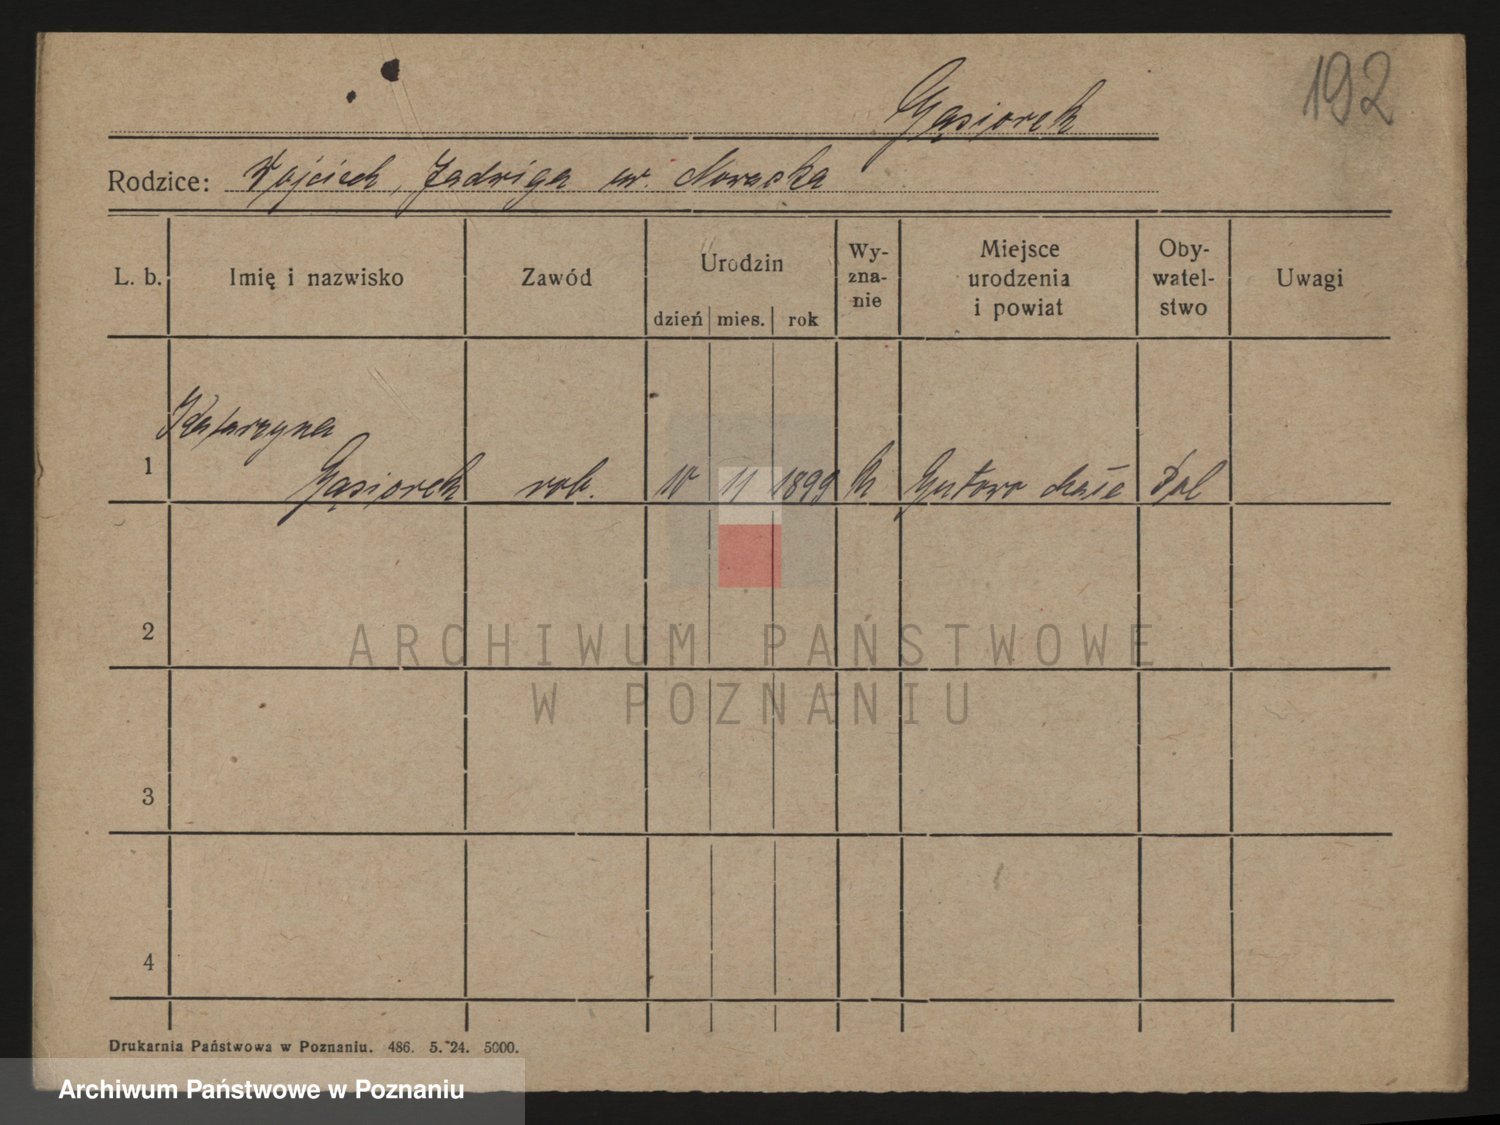 192
Gąsiorek
Rodzice: Wojciech, Jadwiga ur. Nowacka
L. b. Imię i nazwisko Zawód Urodzin dzień mies. rok Wy-zna-nie Miejsce urodzenia i powiat Oby-watel-stwo Uwagi
Katarzyna
1 Gąsiorek rob. 10 11 1899 k Gutowo Małe Pol
2
ARCHIWUM PAŃSTWOWE
W POZNANIU
3
4
Drukarnia Państwowa w Poznaniu. 486. 5. 24. 5000.
Archiwum Państwowe w Poznaniu